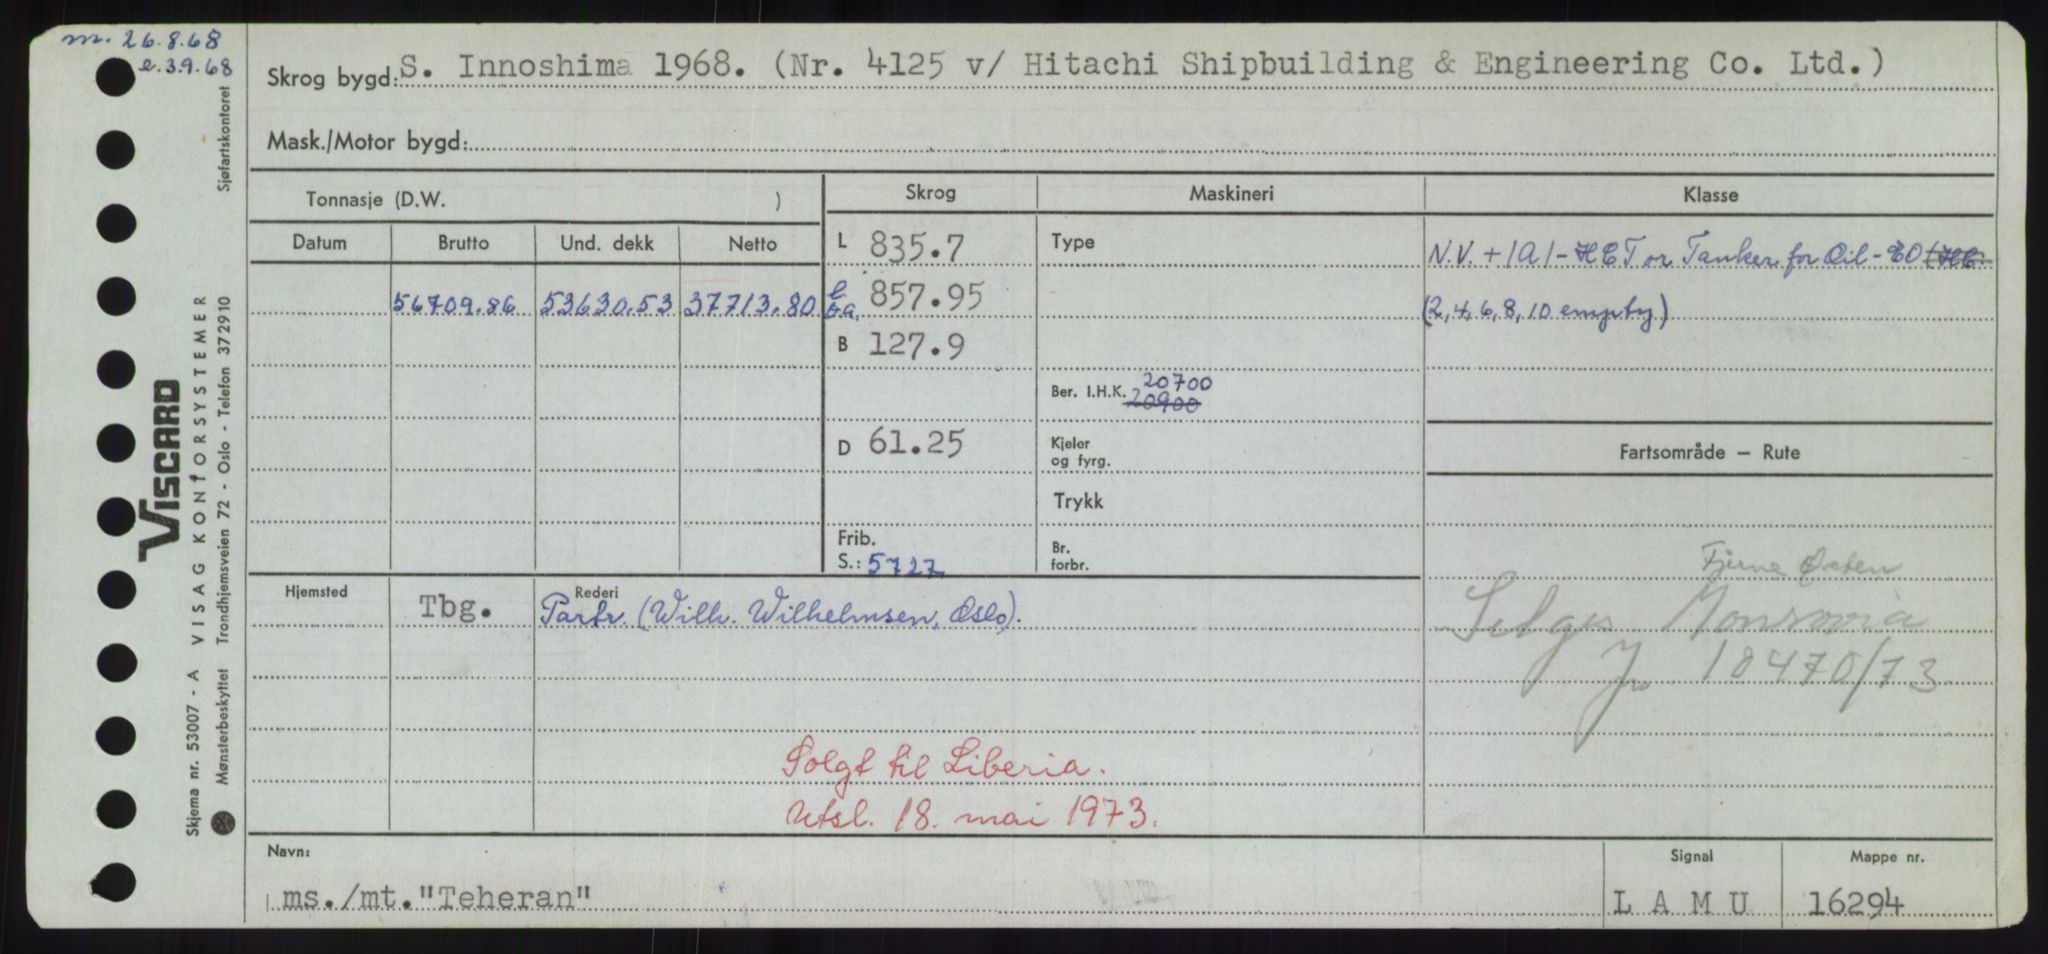 m. 26.8.68
e. 3.9.68
Skrog bygd: S. Innoshima 1968. (Nr. 4125 v/ Hitachi Shipbuilding & Engineering Co. Ltd.)
Mask./Motor bygd:
Tonnasje (D.W. )
Skrog
Maskineri
Klasse
Datum Brutto Und. dekk Netto
L 835.7
Type
N.V. + 1A1 - HCT or Tanker for Oil - EO
56709.86 53630.53 37713.80
857.95
(2,4,6,8,10 empty)
B 127.9
Ber. I.H.K. 20700
20900
D 61.25
Kjeler
og fyrg.
Fartsområde – Rute
Trykk
Frib.
S.: 5727
Br.
forbr.
Fjerne Østen
Hjemsted Tbg.
Rederi
Partr. (Wilh. Wilhelmsen, Oslo).
Selges Monrovia
Jr 10470/73
Solgt til Liberia.
Utsl. 18. mai 1973.
Navn:
ms./mt."Teheran"
Signal
L A M U
Mappe nr.
16294
VISCARD
Skjema nr. 53007 - A VISAG KONTORSYSTEMER
Mønsterbeskyttet Trondhjemsveien 72 - Oslo - Telefon 372910 Sjøfartskontoret